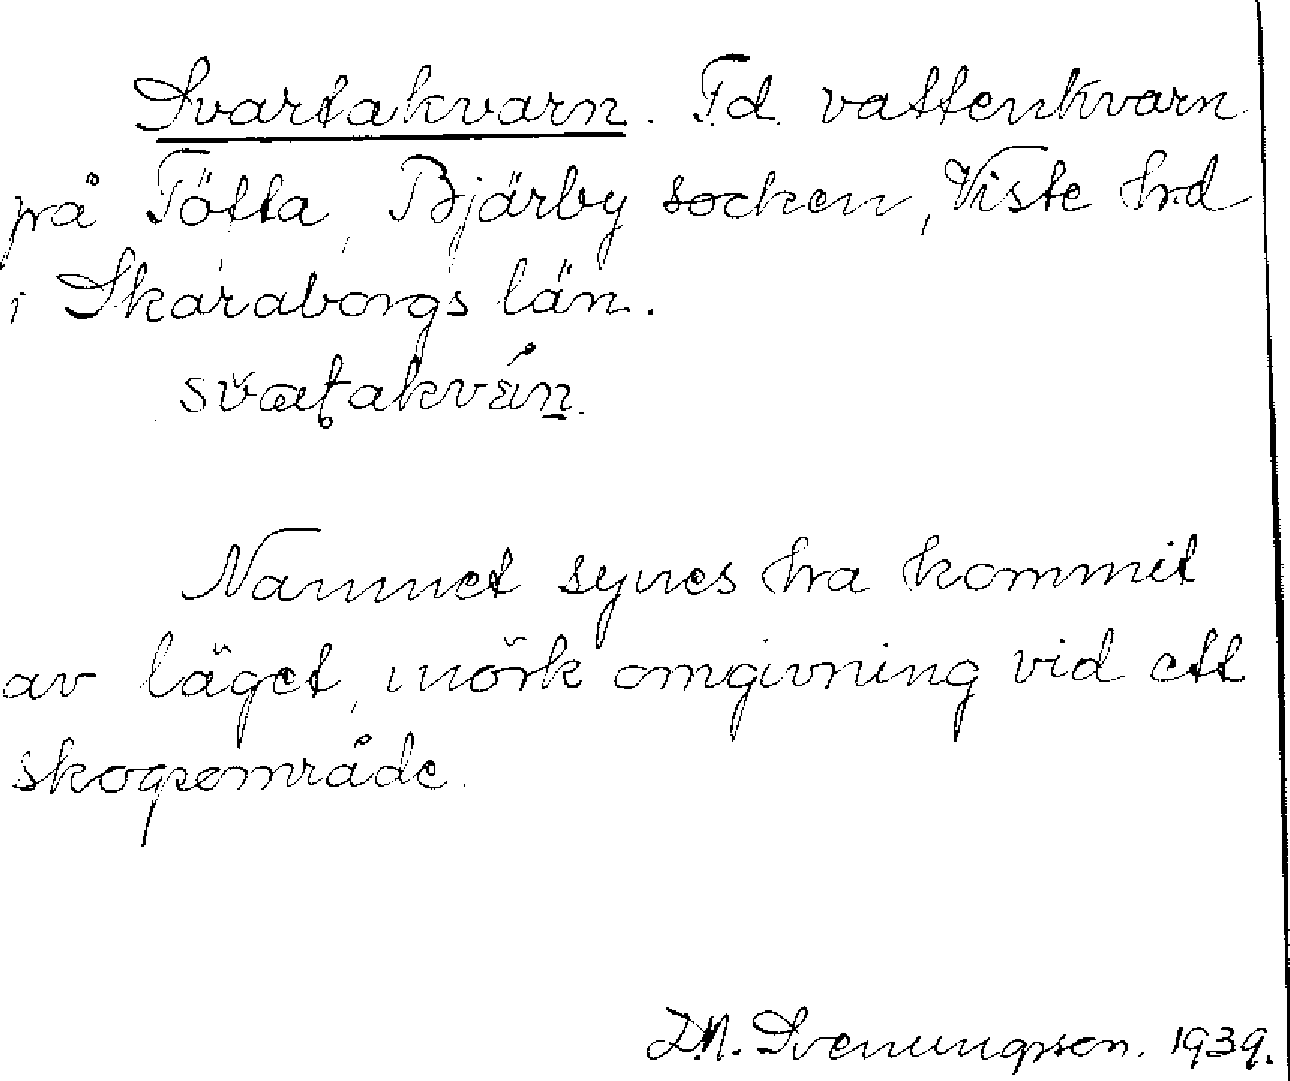 Svartakvarn. F.d. vattenkvarn
på Töfta, Bjärby socken, Viste hd
i Skaraborgs län.
Namnet synes ha kommit
av läget, mörk omgivning vid ett
skogsområde.
Svenungsson. 1939.